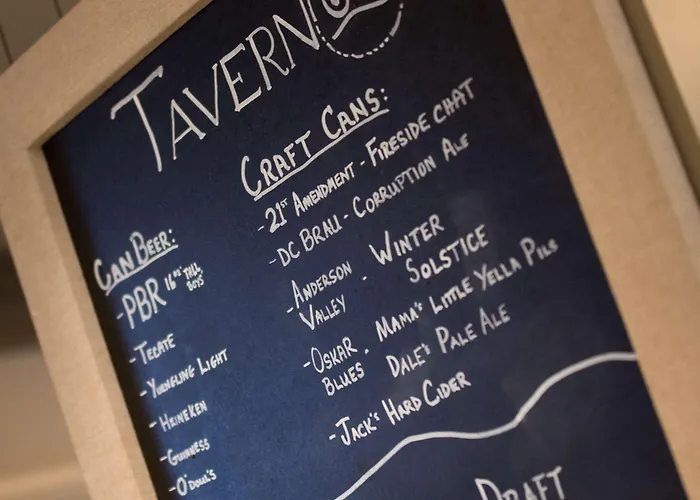 TAVERN
CRAFT CANS:
- 21ST AMENDMENT - FIRESIDE CHAT
- DC BRAU - CORRUPTION ALE
- ANDERSON VALLEY - WINTER SOLSTICE
- OSKAR BLUES - MAMA'S LITTLE YELLA PILS
DALE'S PALE ALE
- JACK'S HARD CIDER
CAN BEER:
- PBR 16OZ TALL BOYS
- TECATE
- YUENGLING LIGHT
- HEINEKEN
- GUINNESS
- O'DOUL'S
DRAFT